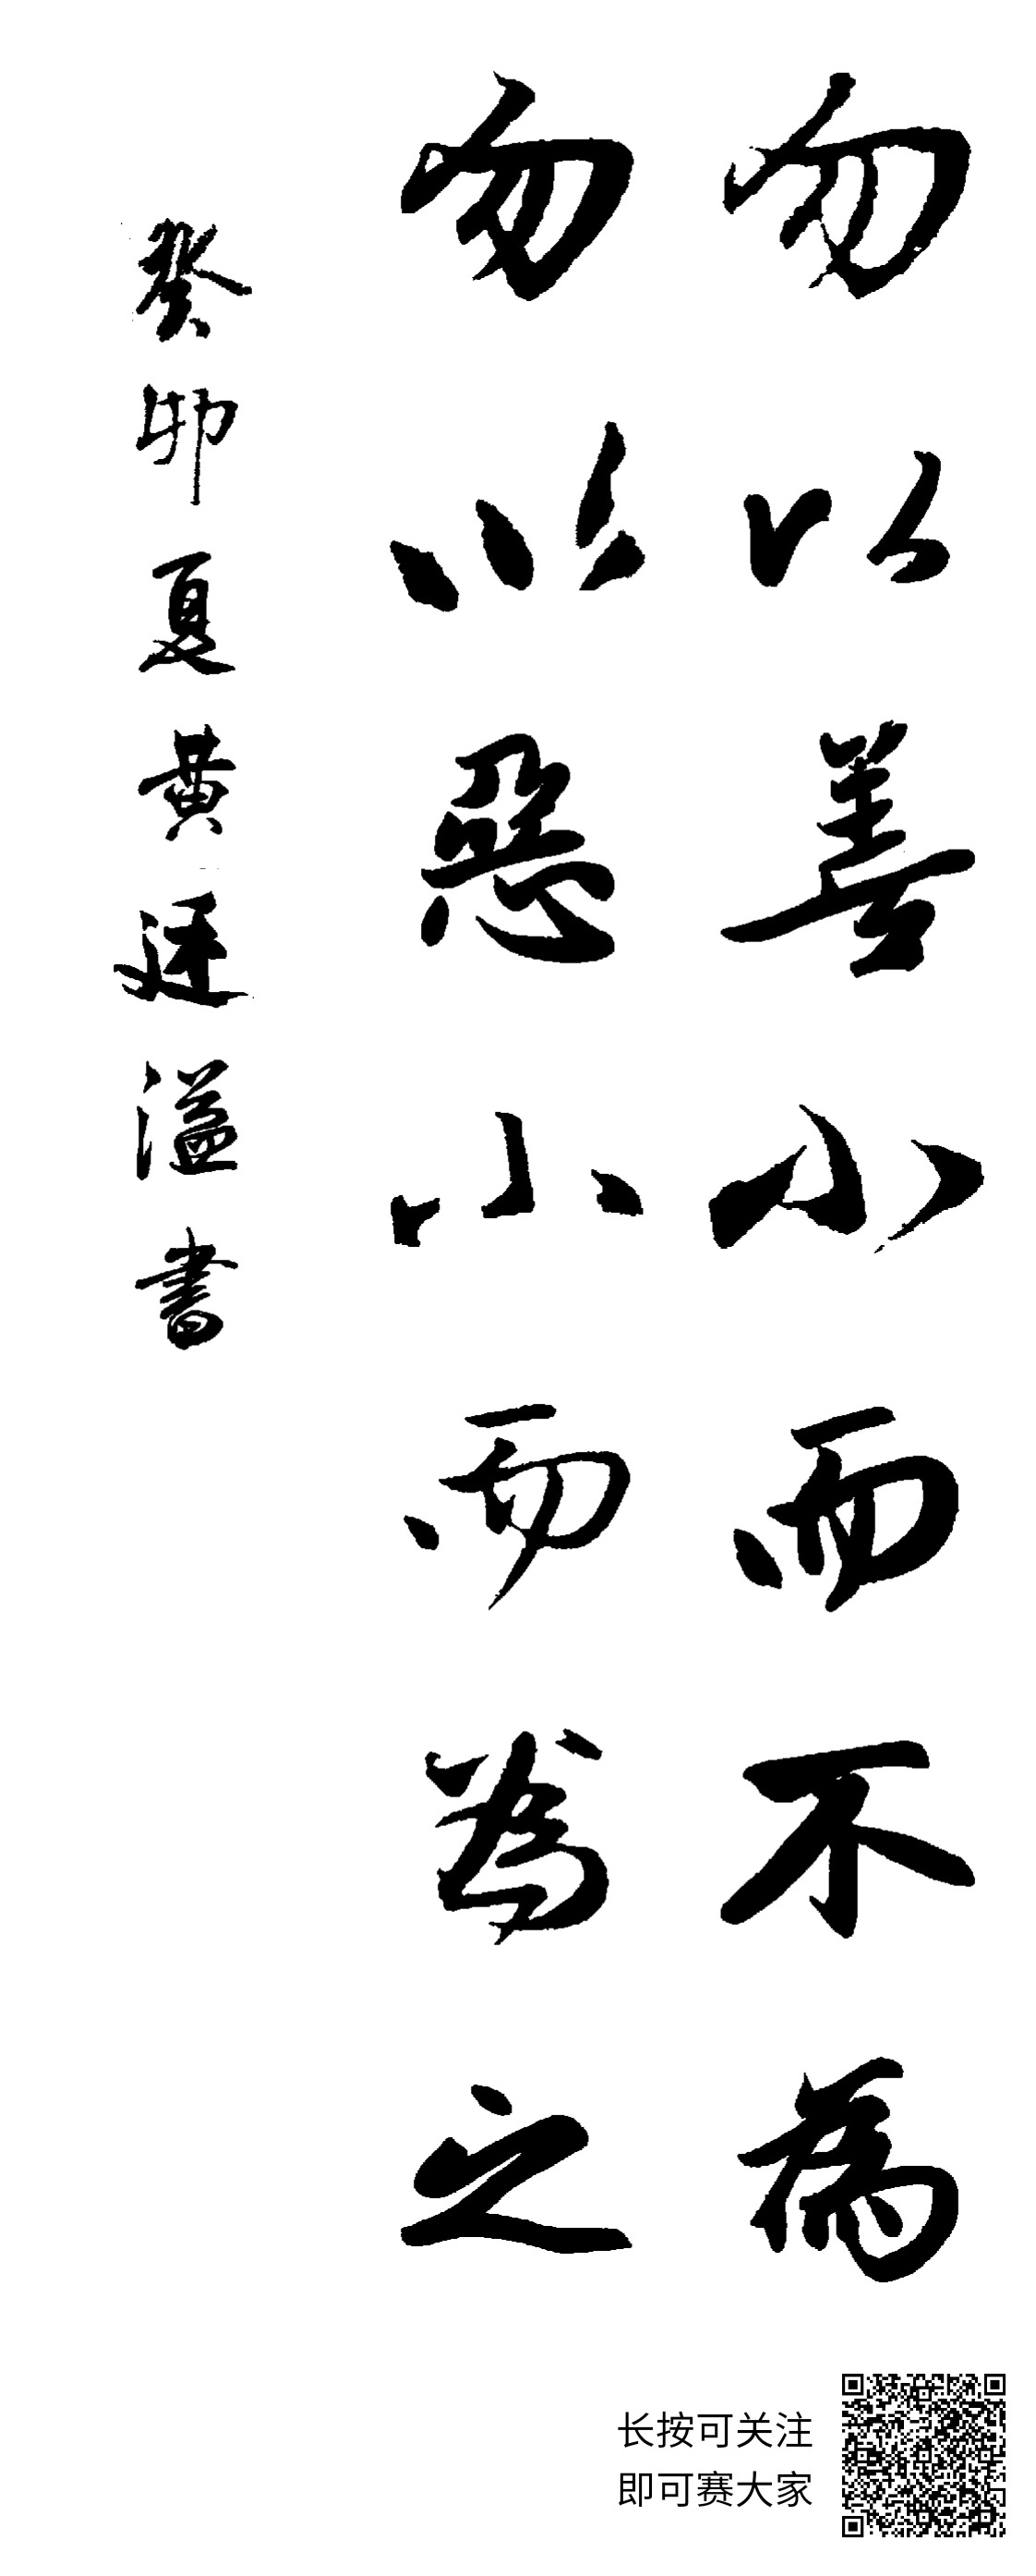 勿以善小而不為
勿以惡小而為之
癸卯夏黄廷溢書
长按可关注
即可赛大家